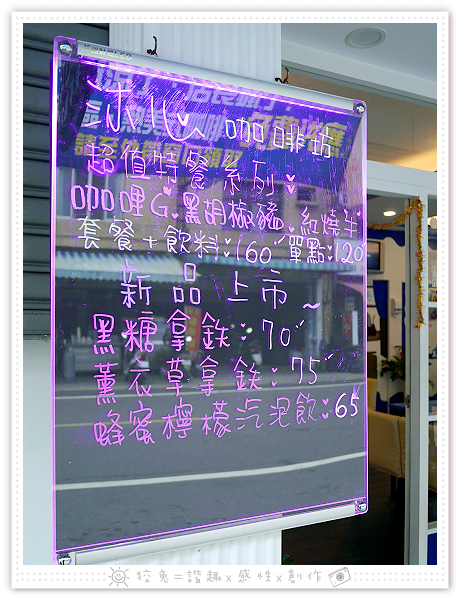 冰心 咖啡坊
超值特餐系列:
咖哩G.黑胡椒豬.紅燒牛
套餐+飲料:160 單點:120
新品上市~
黑糖拿鉄:70
薰衣草拿鉄:75
蜂蜜檸檬汽泡飲:65
狡兔=諧趣x感性x創作